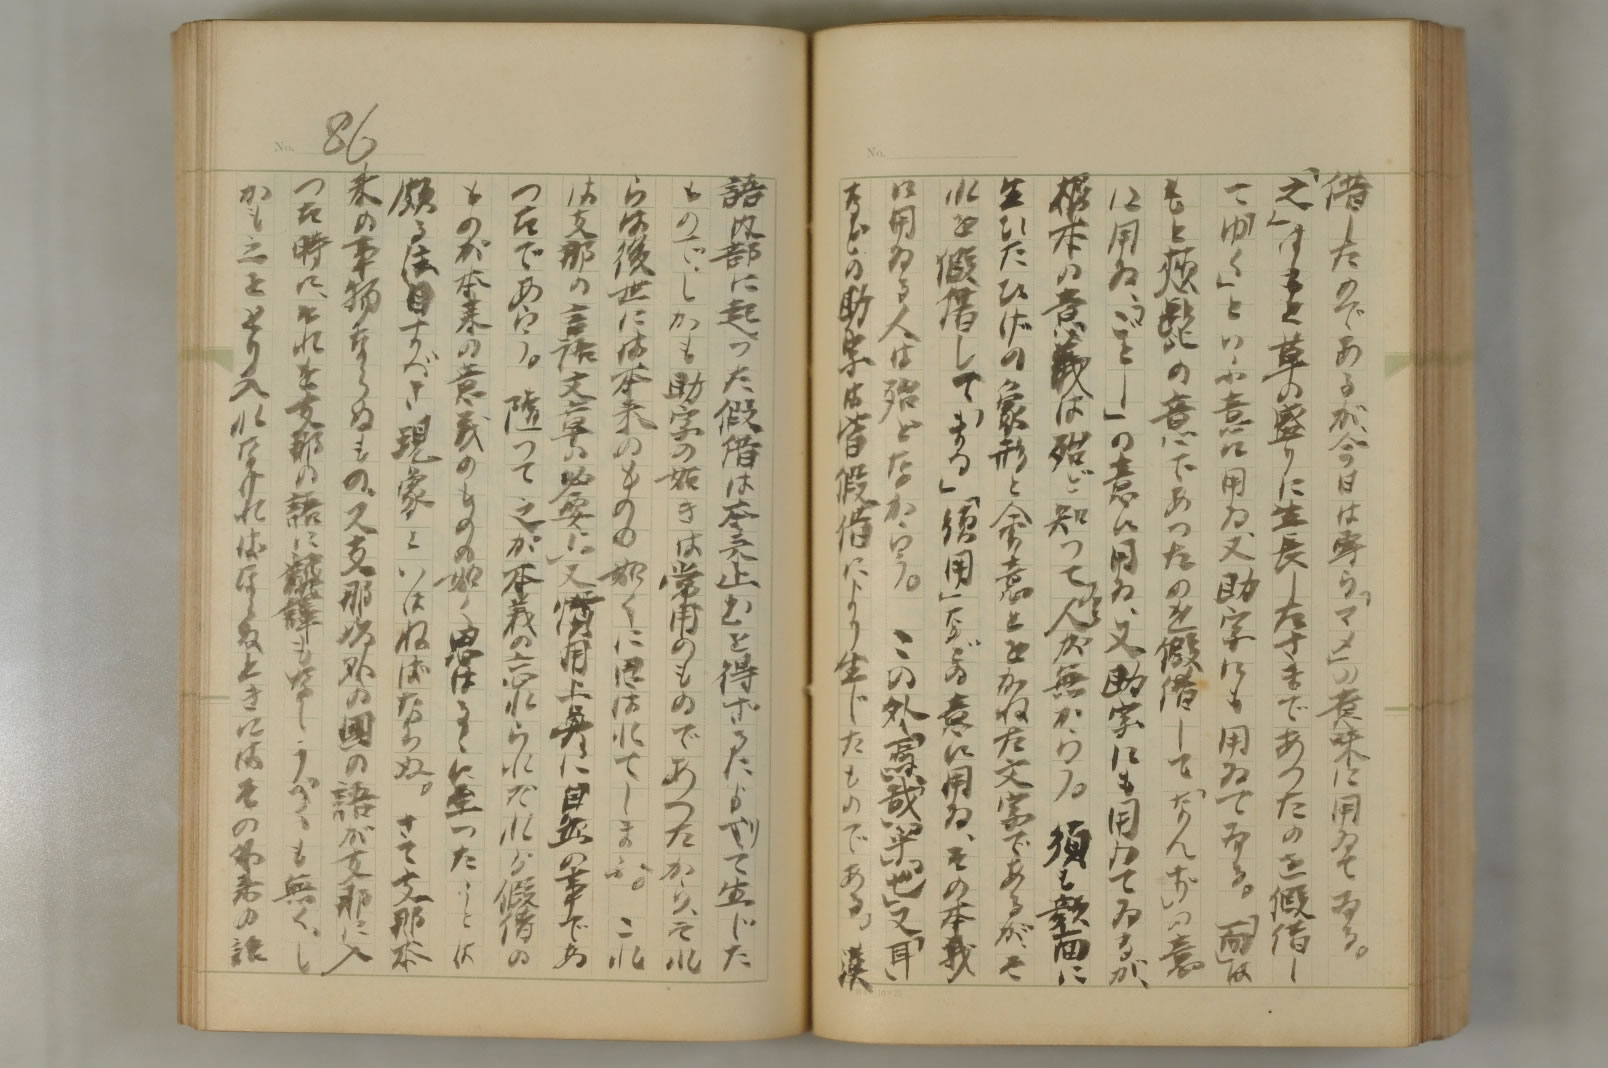 借したのであるが、今日は専ら「マメ」の意味に用ゐてゐる。
「之」はもと草の盛りに生長したさまであつたのを假借し
て「ゆく」といふ意に用ゐ、又助字にも用ゐてゐる。「而」は
もと頬髭の意であつたのを假借して「なんぢ」の意
に用ゐ、「ごとし」の意に用ゐ、又助字にも用ゐてゐるが、
根本の意義は殆ど知つてゐる人が無からう。須も顔面に
生ひたひげの象形と會意とをかねた文字であるが、そ
れを假借して「まつ」「須用」などの意に用ゐ、その本義
に用ゐる人は殆どなからう。この外「焉」「哉」「梁」「也」又「耳」
などの助字は皆假借により生じたものである。漢
No.
語内部に起つた假借は本来止むを得ざるによりて生じた
ものでしかも助字の如きは常用のものであつたから、それ
らは後世には本来のものの如くに思はれてしまふ。これ
は支那の言語文章の必要上又慣用上真に自然の事であ
つたであらう。随つて之が本義の忘れられたれが假借の
ものが本来の意義のものの如く思はるるに至つたことは
頗る注目すべき現象といはねばならぬ。さて支那本
来の事物ならぬもの、又支那以外の國の語が支那に入
つた時に、それを支那の語に翻譯も出来うべくも無く、し
かも之をとり入れなければならぬときにはその外来の語
No. 86